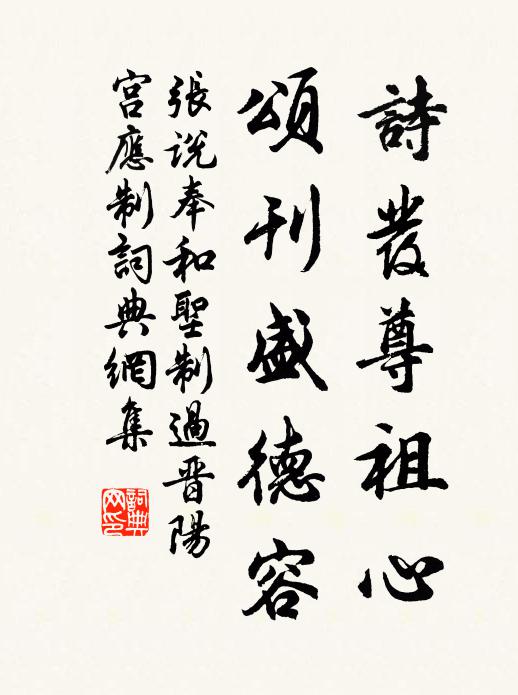 詩發尊祖心
頌刊盛德容
張說奉和聖制過晉陽
宮應制詞典網集
詞典
网印